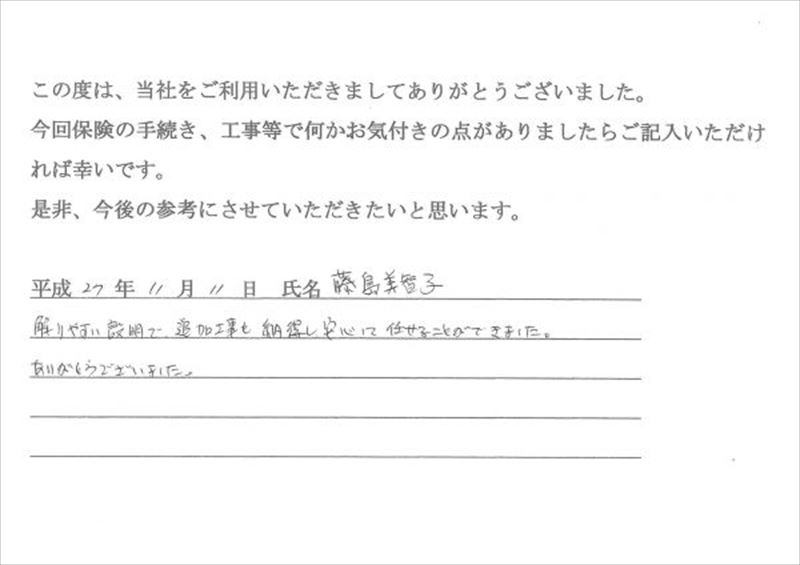 この度は、当社をご利用いただきましてありがとうございました。
今回保険の手続き、工事等で何かお気付きの点がありましたらご記入いただけ
れば幸いです。
是非、今後の参考にさせていただきたいと思います。
平成 27 年 11 月 11 日 氏名 藤島美智子
解りやすい説明で、追加工事も納得し安心して任せることができました。
ありがとうございました。